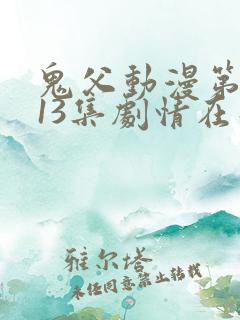 鬼父動漫第
13集劇情在
雅尔塔
未经同意禁止转载